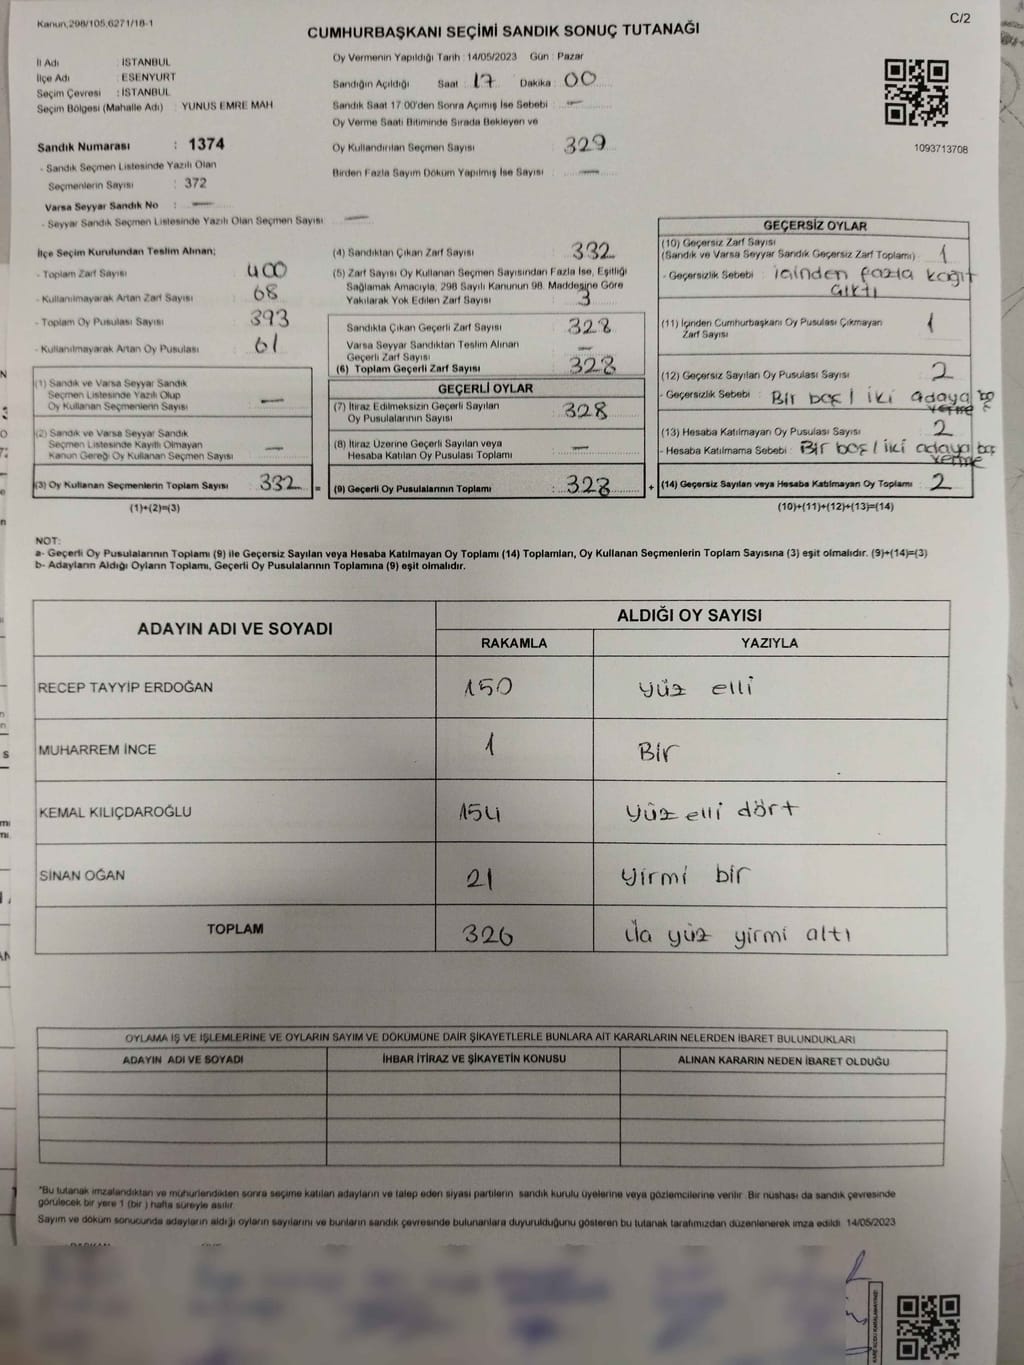 Kanun,298/105,6271/18-1
C/2
CUMHURBAŞKANI SEÇİMİ SANDIK SONUÇ TUTANAĞI
İl Adı : İSTANBUL
İlçe Adı : ESENYURT
Seçim Çevresi : İSTANBUL
Seçim Bölgesi (Mahalle Adı) : YUNUS EMRE MAH
Sandık Numarası : 1374
- Sandık Seçmen Listesinde Yazılı Olan
Seçmenlerin Sayısı : 372
Varsa Seyyar Sandık No : —
- Seyyar Sandık Seçmen Listesinde Yazılı Olan Seçmen Sayısı —
Oy Vermenin Yapıldığı Tarih : 14/05/2023 Gün : Pazar
Sandığın Açıldığı Saat : 17 Dakika : 00
Sandık Saat 17:00'den Sonra Açımış İse Sebebi : —
Oy Verme Saati Bitiminde Sırada Bekleyen ve
Oy Kullandırılan Seçmen Sayısı : 329
Birden Fazla Sayım Döküm Yapılmış İse Sayısı : —
1093713708
İlçe Seçim Kurulundan Teslim Alınan;
- Toplam Zarf Sayısı : 400
- Kullanılmayarak Artan Zarf Sayısı : 68
- Toplam Oy Pusulası Sayısı : 393
- Kullanılmayarak Artan Oy Pusulası : 61
(1) Sandık ve Varsa Seyyar Sandık
Seçmen Listesinde Yazılı Olup
Oy Kullanan Seçmenlerin Sayısı : —
(2) Sandık ve Varsa Seyyar Sandık
Seçmen Listesinde Kayıtlı Olmayan
Kanun Gereği Oy Kullanan Seçmen Sayısı : —
(3) Oy Kullanan Seçmenlerin Toplam Sayısı : 332 =
(1)+(2)=(3)
(4) Sandıktan Çıkan Zarf Sayısı : 332
(5) Zarf Sayısı Oy Kullanan Seçmen Sayısından Fazla İse, Eşitliği
Sağlamak Amacıyla, 298 Sayılı Kanunun 98. Maddesine Göre
Yakılarak Yok Edilen Zarf Sayısı : 3
Sandıkta Çıkan Geçerli Zarf Sayısı : 328
Varsa Seyyar Sandıktan Teslim Alınan
Geçerli Zarf Sayısı : —
(6) Toplam Geçerli Zarf Sayısı : 328
GEÇERLİ OYLAR
(7) İtiraz Edilmeksizin Geçerli Sayılan
Oy Pusulalarının Sayısı : 328
(8) İtiraz Üzerine Geçerli Sayılan veya
Hesaba Katılan Oy Pusulası Toplamı : —
(9) Geçerli Oy Pusulalarının Toplamı : 328 +
GEÇERSİZ OYLAR
(10) Geçersiz Zarf Sayısı
(Sandık ve Varsa Seyyar Sandık Geçersiz Zarf Toplamı) : 1
- Geçersizlik Sebebi : içinden fazla kağıt
çıktı
(11) İçinden Cumhurbaşkanı Oy Pusulası Çıkmayan
Zarf Sayısı : 1
(12) Geçersiz Sayılan Oy Pusulası Sayısı : 2
- Geçersizlik Sebebi : Bir boş / iki adaya
verme
(13) Hesaba Katılmayan Oy Pusulası Sayısı : 2
- Hesaba Katılmama Sebebi : Bir boş / iki adaya
verme
(14) Geçersiz Sayılan veya Hesaba Katılmayan Oy Toplamı : 2
(10)+(11)+(12)+(13)=(14)
NOT:
a- Geçerli Oy Pusulalarının Toplamı (9) ile Geçersiz Sayılan veya Hesaba Katılmayan Oy Toplamı (14) Toplamları, Oy Kullanan Seçmenlerin Toplam Sayısına (3) eşit olmalıdır. (9)+(14)=(3)
b- Adayların Aldığı Oyların Toplamı, Geçerli Oy Pusulalarının Toplamına (9) eşit olmalıdır.
ADAYIN ADI VE SOYADI
ALDIĞI OY SAYISI
RAKAMLA YAZIYLA
RECEP TAYYİP ERDOĞAN 150 yüz elli
MUHARREM İNCE 1 Bir
KEMAL KILIÇDAROĞLU 154 yüz elli dört
SİNAN OĞAN 21 yirmi bir
TOPLAM 326 yüz yirmi altı
OYLAMA İŞ VE İŞLEMLERİNE VE OYLARIN SAYIM VE DÖKÜMÜNE DAİR ŞİKAYETLERLE BUNLARA AİT KARARLARIN NELERDEN İBARET BULUNDUKLARI
ADAYIN ADI VE SOYADI İHBAR İTİRAZ VE ŞİKAYETİN KONUSU ALINAN KARARIN NEDEN İBARET OLDUĞU
*Bu tutanak imzalandıktan ve mühürlendikten sonra seçime katılan adayların ve talep eden siyasi partilerin sandık kurulu üyelerine veya gözlemcilerine verilir. Bir nüshası da sandık çevresinde
görülecek bir yere 1 (bir ) hafta süreyle asılır.
Sayım ve döküm sonucunda adayların aldığı oyların sayılarını ve bunların sandık çevresinde bulunanlara duyurulduğunu gösteren bu tutanak tarafımızdan düzenlenerek imza edildi. 14/05/2023